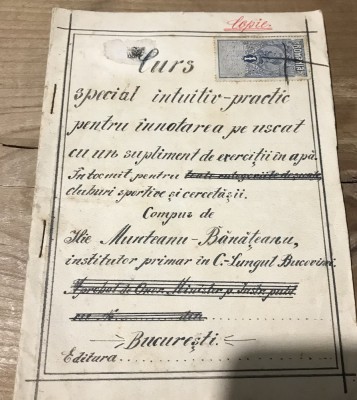 Copie
Curs
special intuitiv-practic
pentru innotarea pe uscat
cu un supliment de exerciții în apă.
Întocmit pentru toate categoriile de școli,
cluburi sportive și cercetășii.
Compus de
Ilie Munteanu-Bănățeanu,
institutor primar în C.-Lungul Bucovinei
Aprobat de Onor. Minister
București.
Editura
ROMANIA